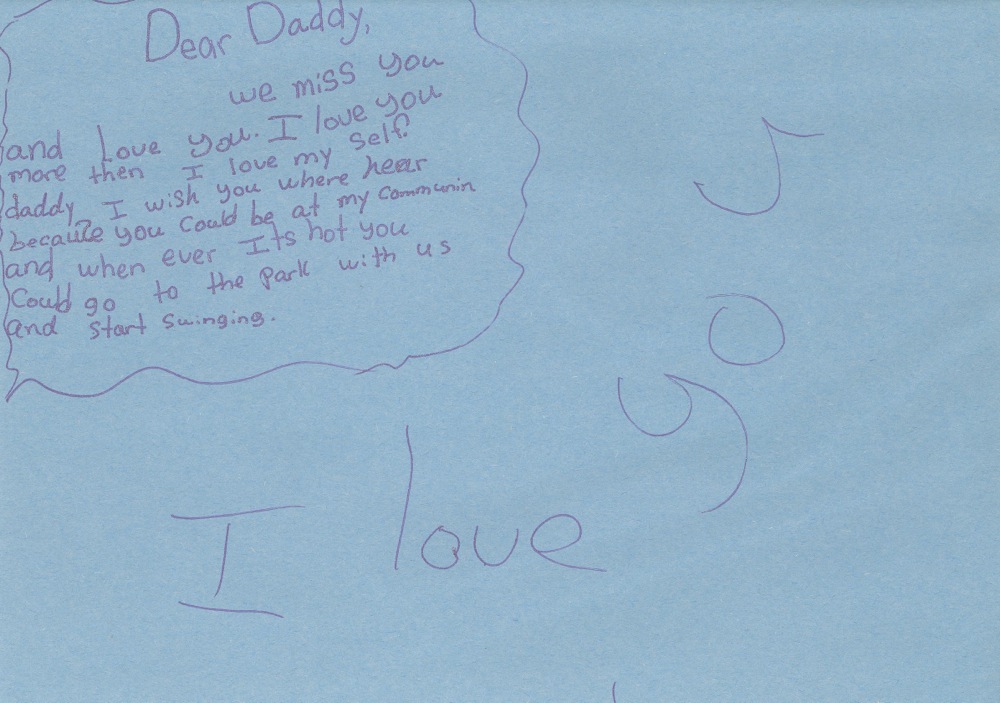 Dear Daddy,
we miss you
and love you. I love you
more then I love my self.
daddy I wish you where hear
because you could be at my communin
and when ever Its hot you
Could go to the park with us
and start swinging.
I love you